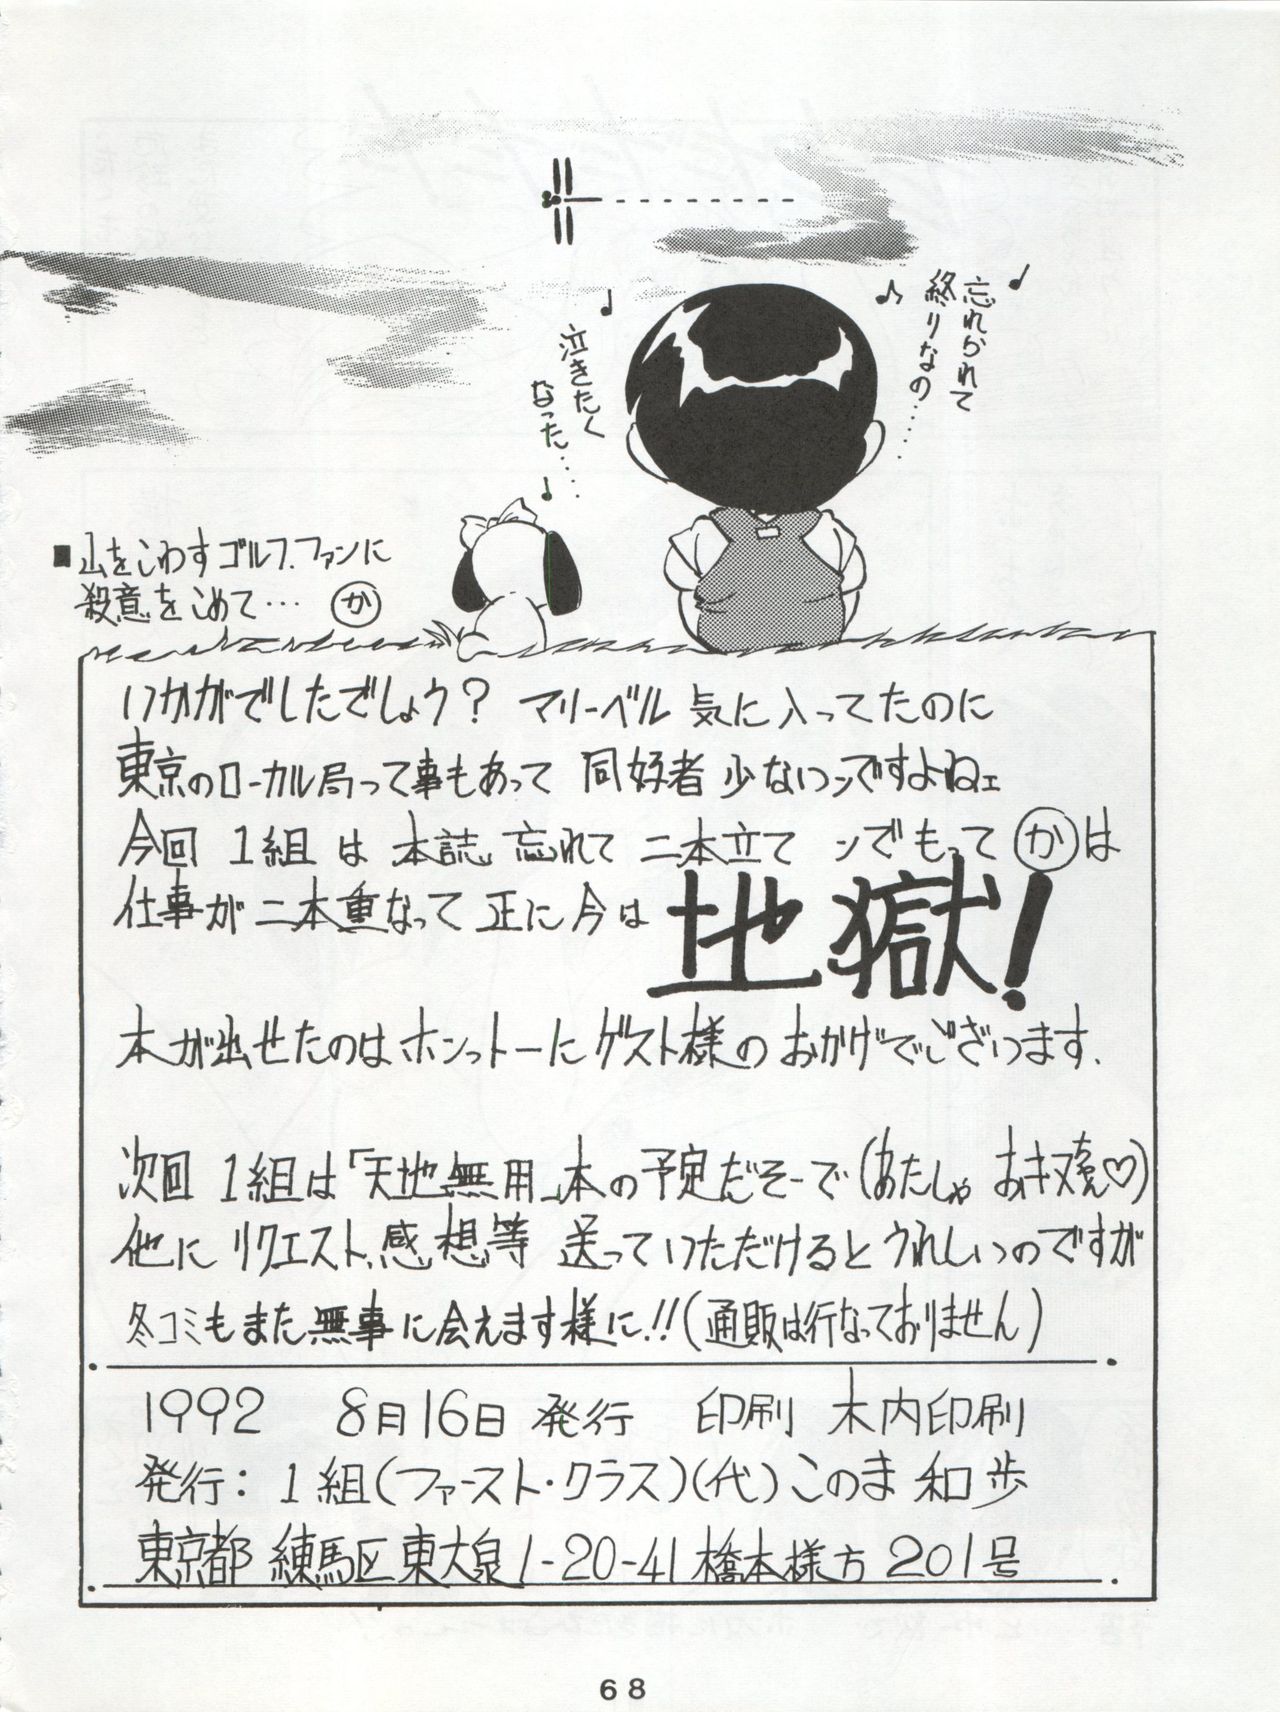 忘れられて
終りなの‥‥
泣きたく
なった‥‥
■山をこわすゴルフ.ファンに
殺意をこめて… か
いかがでしたでしょう? マリーベル 気に入ってたのに
東京のローカル局って事もあって 同好者 少ないンですよねェ
今回 1組 は 本誌 忘れて 二本立て ンでもって か は
仕事が 二本重なって 正に今は 地獄!
本が出せたのはホンっトーにゲスト様の おかげでございます.
次回 1組は「天地無用」本の予定だそーで(あたしゃ お
他に リクエスト、感想等 送っていただけるとうれしいのですが
冬コミもまた無事に会えます様に!!(通販は行なっておりません)
1992 8月16日 発行 印刷 木内印刷
発行: 1組(ファースト・クラス)(代)このま 和歩
東京都 練馬区 東大泉 1-20-41 橋本様方 201号
68